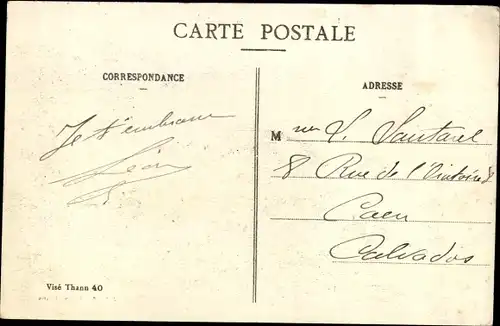 CARTE POSTALE
CORRESPONDANCE
Je t'embrasse
Léon
ADRESSE
Mme L.
8 Rue de
Caen
Calvados
Visé Thann 40